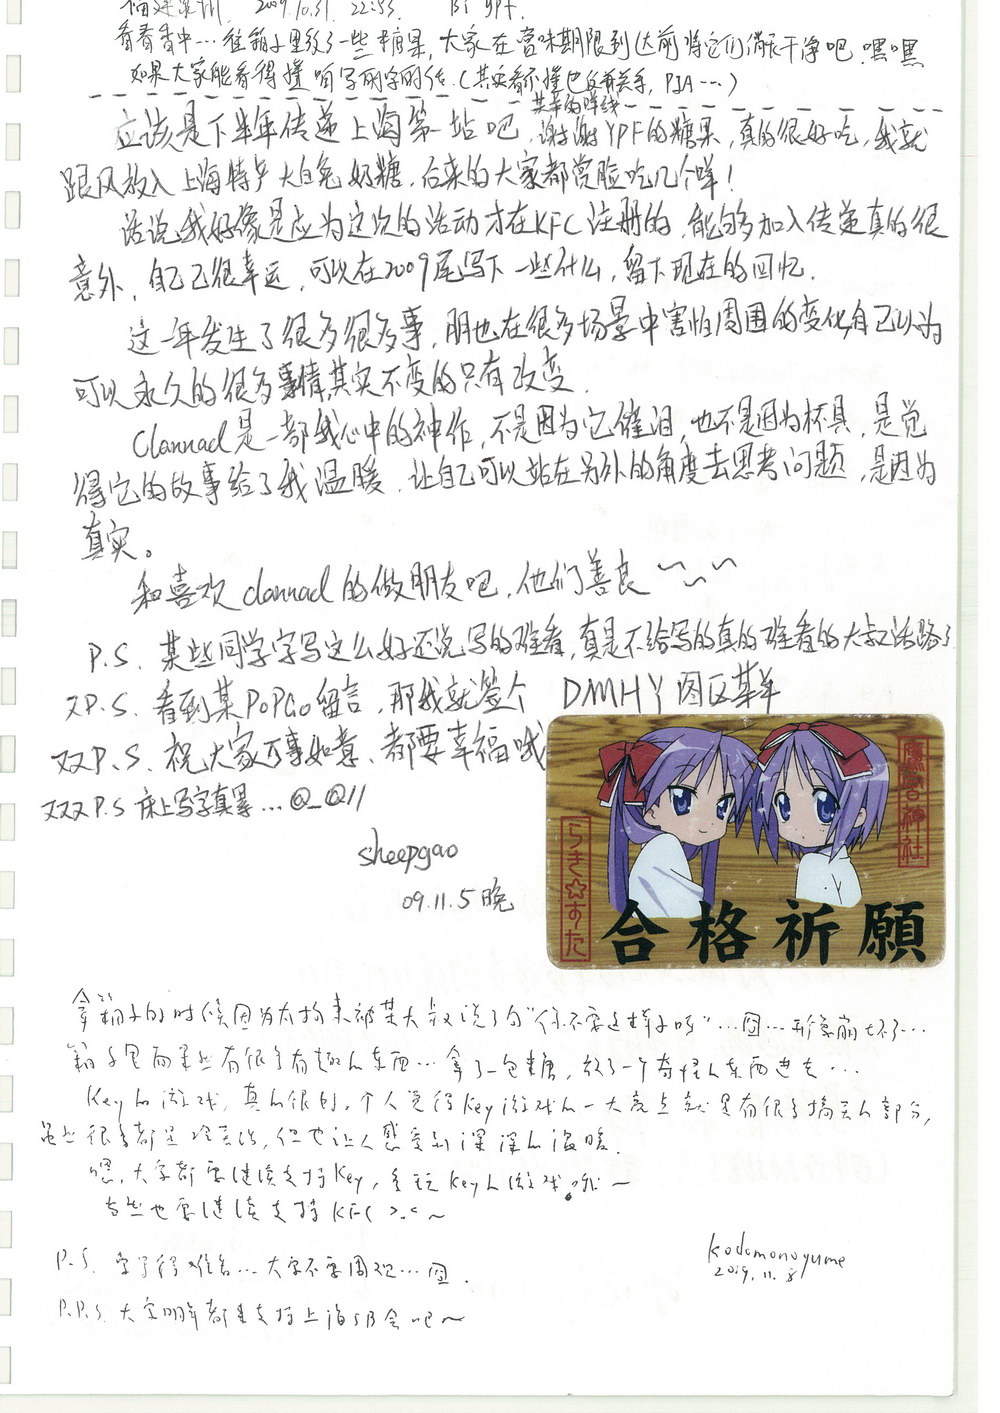 福建漳州 2009.10.31. 22:53. By ypf.
香香香中…往箱子里放了一些糖果,大家在赏味期限到达前将它们消灭干净吧.嘿嘿
如果大家能看得懂咱写的字的话.(其实看不懂也没有关系,PIA……)
应该是下半年传递上海第一站吧,谢谢YPF的糖果,真的很好吃,我就
跟风放入上海特产大白兔奶糖.后来的大家都赏脸吃几个哞!
话说我好像是应为这次的活动才在KFC注册的.能够加入传递真的很
意外,自己很幸运,可以在2009尾写下一些什么,留下现在的回忆.
这一年发生了很多很多事,朋也在很多场景中害怕周围的变化,自己以为
可以永久的很多事情,其实不变的只有改变.
Clannad是一部我心中的神作,不是因为它催泪,也不是因为杯具,是觉
得它的故事给了我温暖.让自己可以站在另外的角度去思考问题,是因为
真实。
和喜欢clannad的做朋友吧,他们善良~~~
P.S. 某些同学字写这么好还说写的难看,真是不给写的真的难看的大叔活路了
又P.S. 看到某POPGO留言,那我就签个 DMHY图区某羊
双P.S. 祝大家万事如意、都要幸福哦
双又P.S 床上写字真累…@_@||
sheepgao
09.11.5晚
鷹宮神社
らき☆すた
合格祈願
拿箱子的时候因为太拘束被某大叔说了句"你不要这样子呀"…囧…形象崩坏了…
箱子里面果然有很多有趣的东西…拿了一包糖,放了一个奇怪的东西进去…
Key的游戏,真的很好,个人觉得Key游戏的一大亮点就是有很多搞笑的部分,
虽然很多都是冷笑话,但也让人感受到深深的温暖.
嗯,大家都要继续支持Key,多玩Key的游戏呢~
当然也要继续支持KFC >.<~
P.S. 字写得难看…大家不要围观…囧.
P.P.S. 大家明年都要支持上海SB会吧~
kodomonoyume
2009.11.8